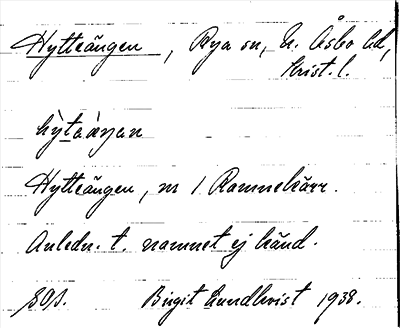 Hytteängen, Rya sn, N. Åsbo hd,
Krist. l.
Hytteängen, nr 1 Ramnekärr.
Anledn. t. namnet ej känd.
Birgit Lundkvist 1938.